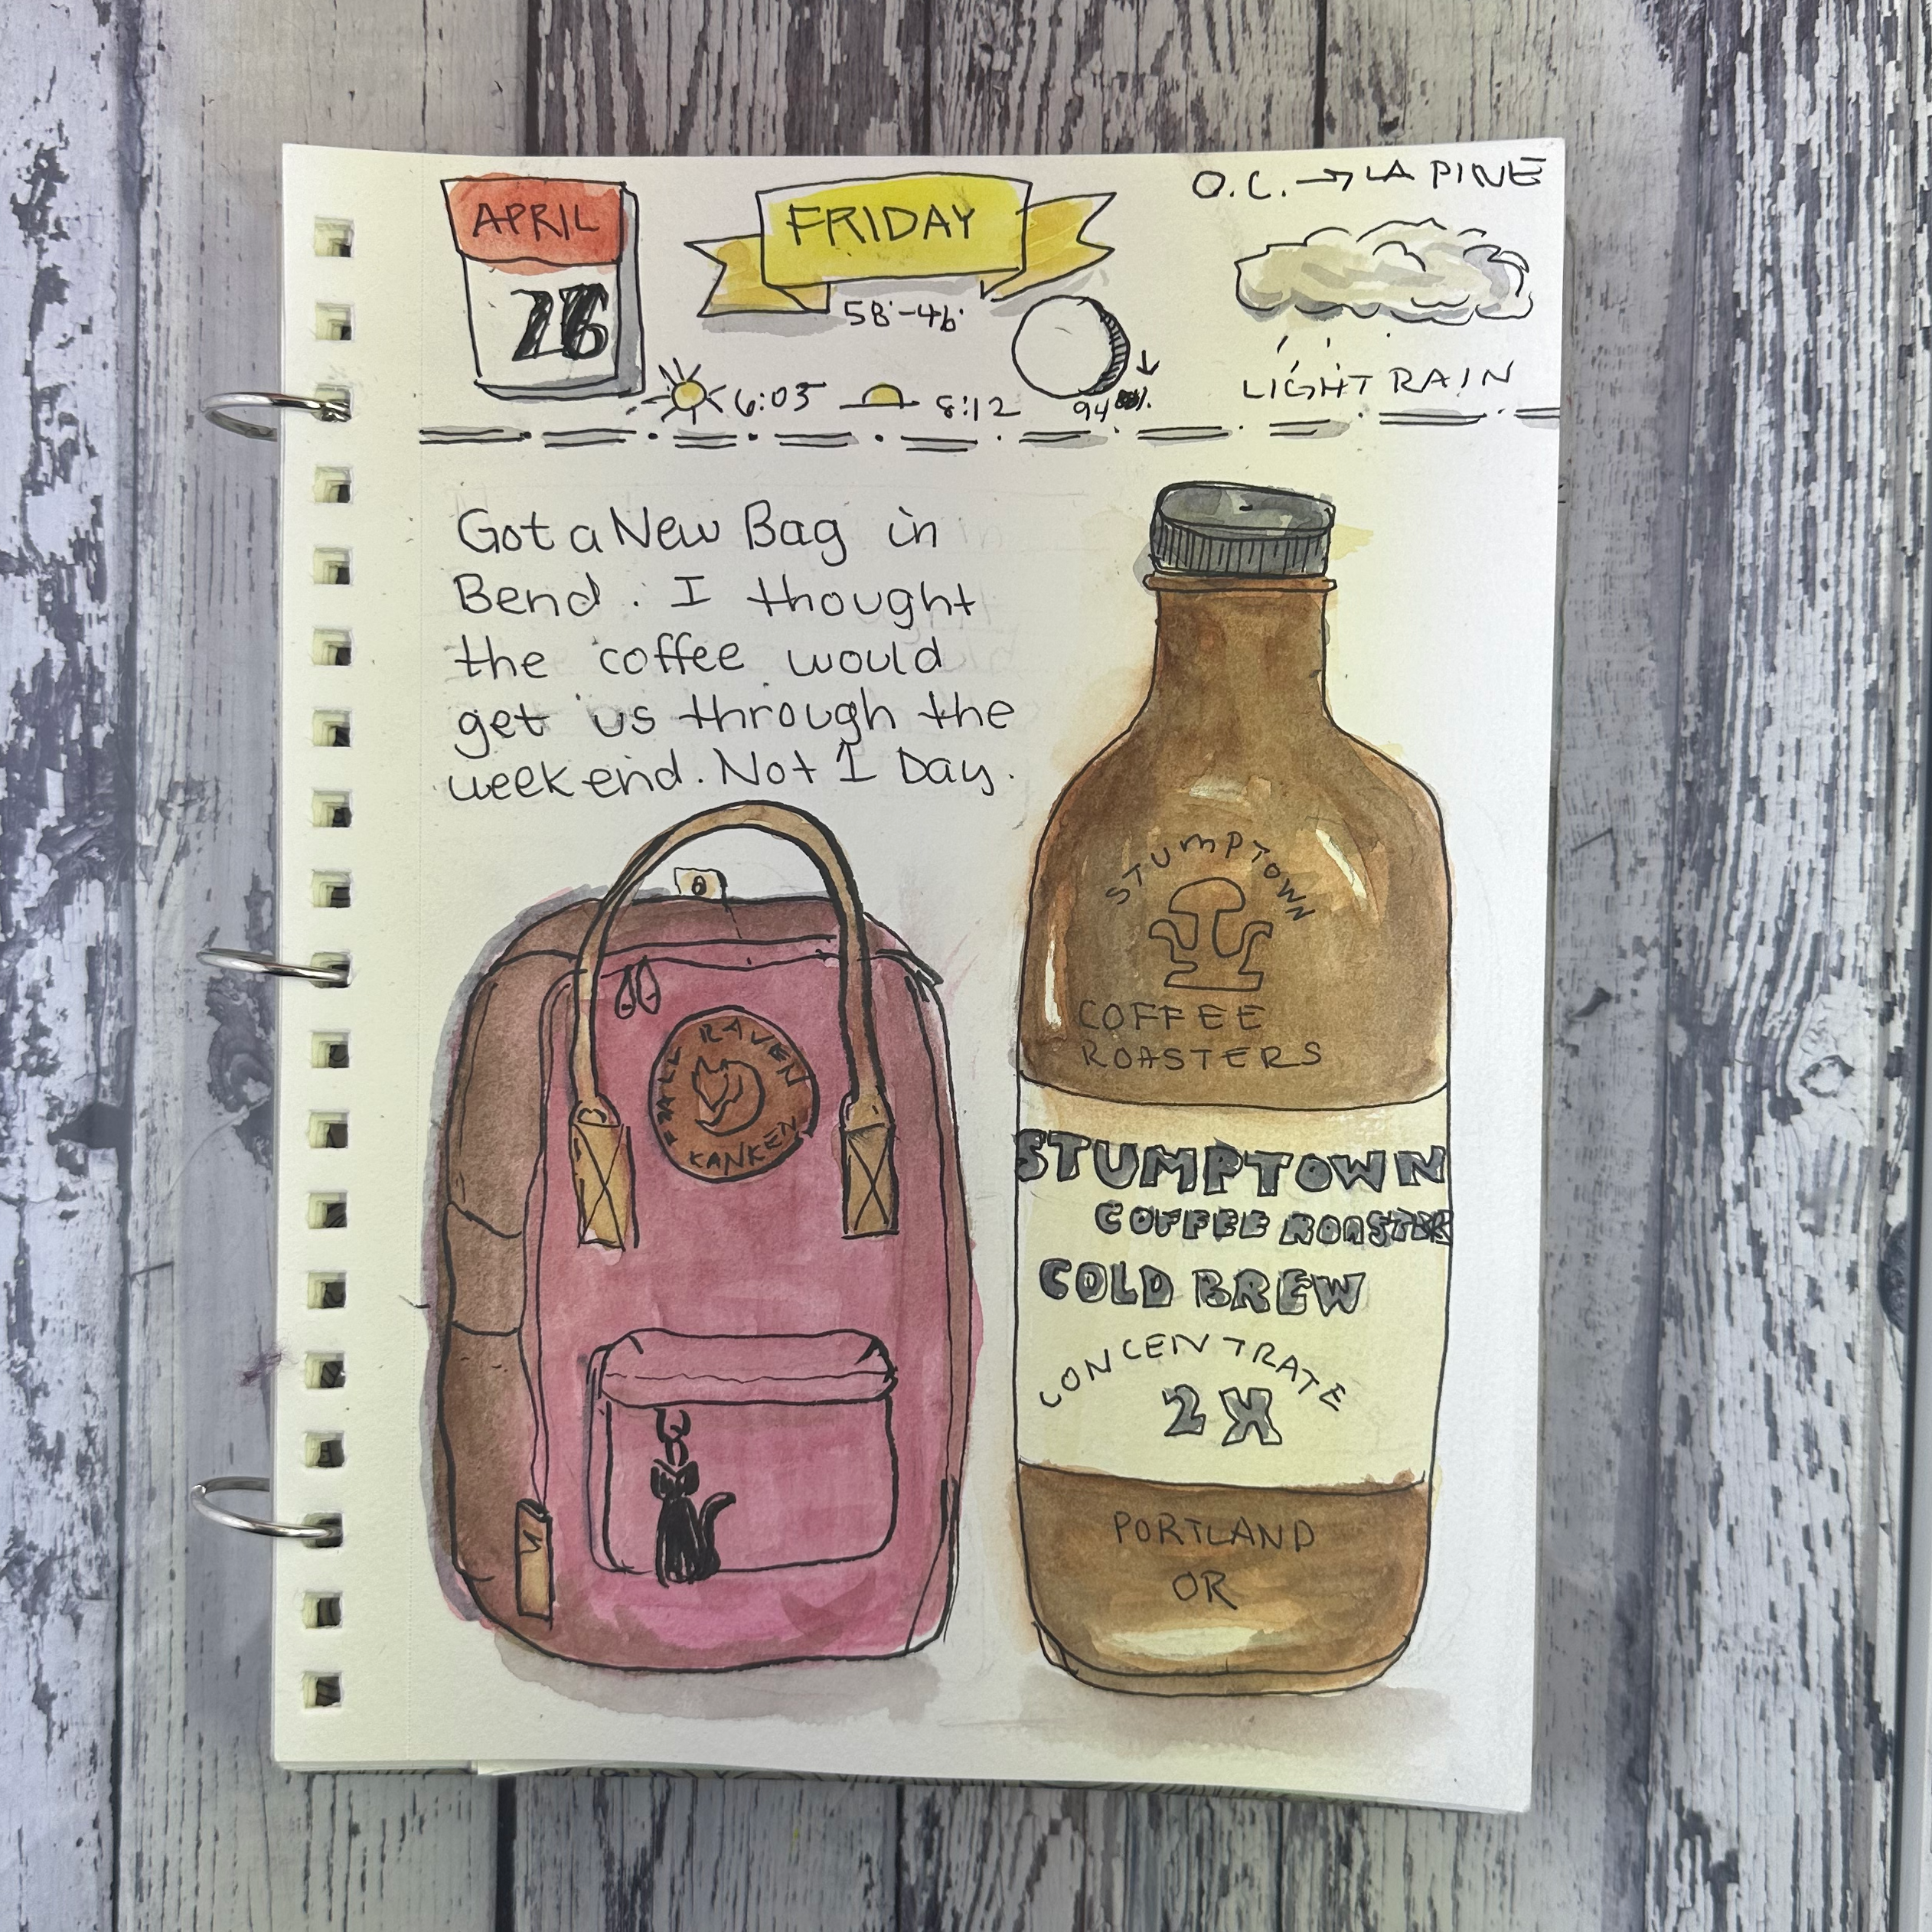 APRIL
26
FRIDAY
58°-46°
6:05
8:12
94%
O.C. → LA PINE
LIGHT RAIN
Got a New Bag in
Bend. I thought
the coffee would
get us through the
weekend. Not 1 Day.
FJALL RAVEN
KANKEN
STUMPTOWN
COFFEE
ROASTERS
STUMPTOWN
COFFEE ROASTER
COLD BREW
CONCENTRATE
2X
PORTLAND
OR